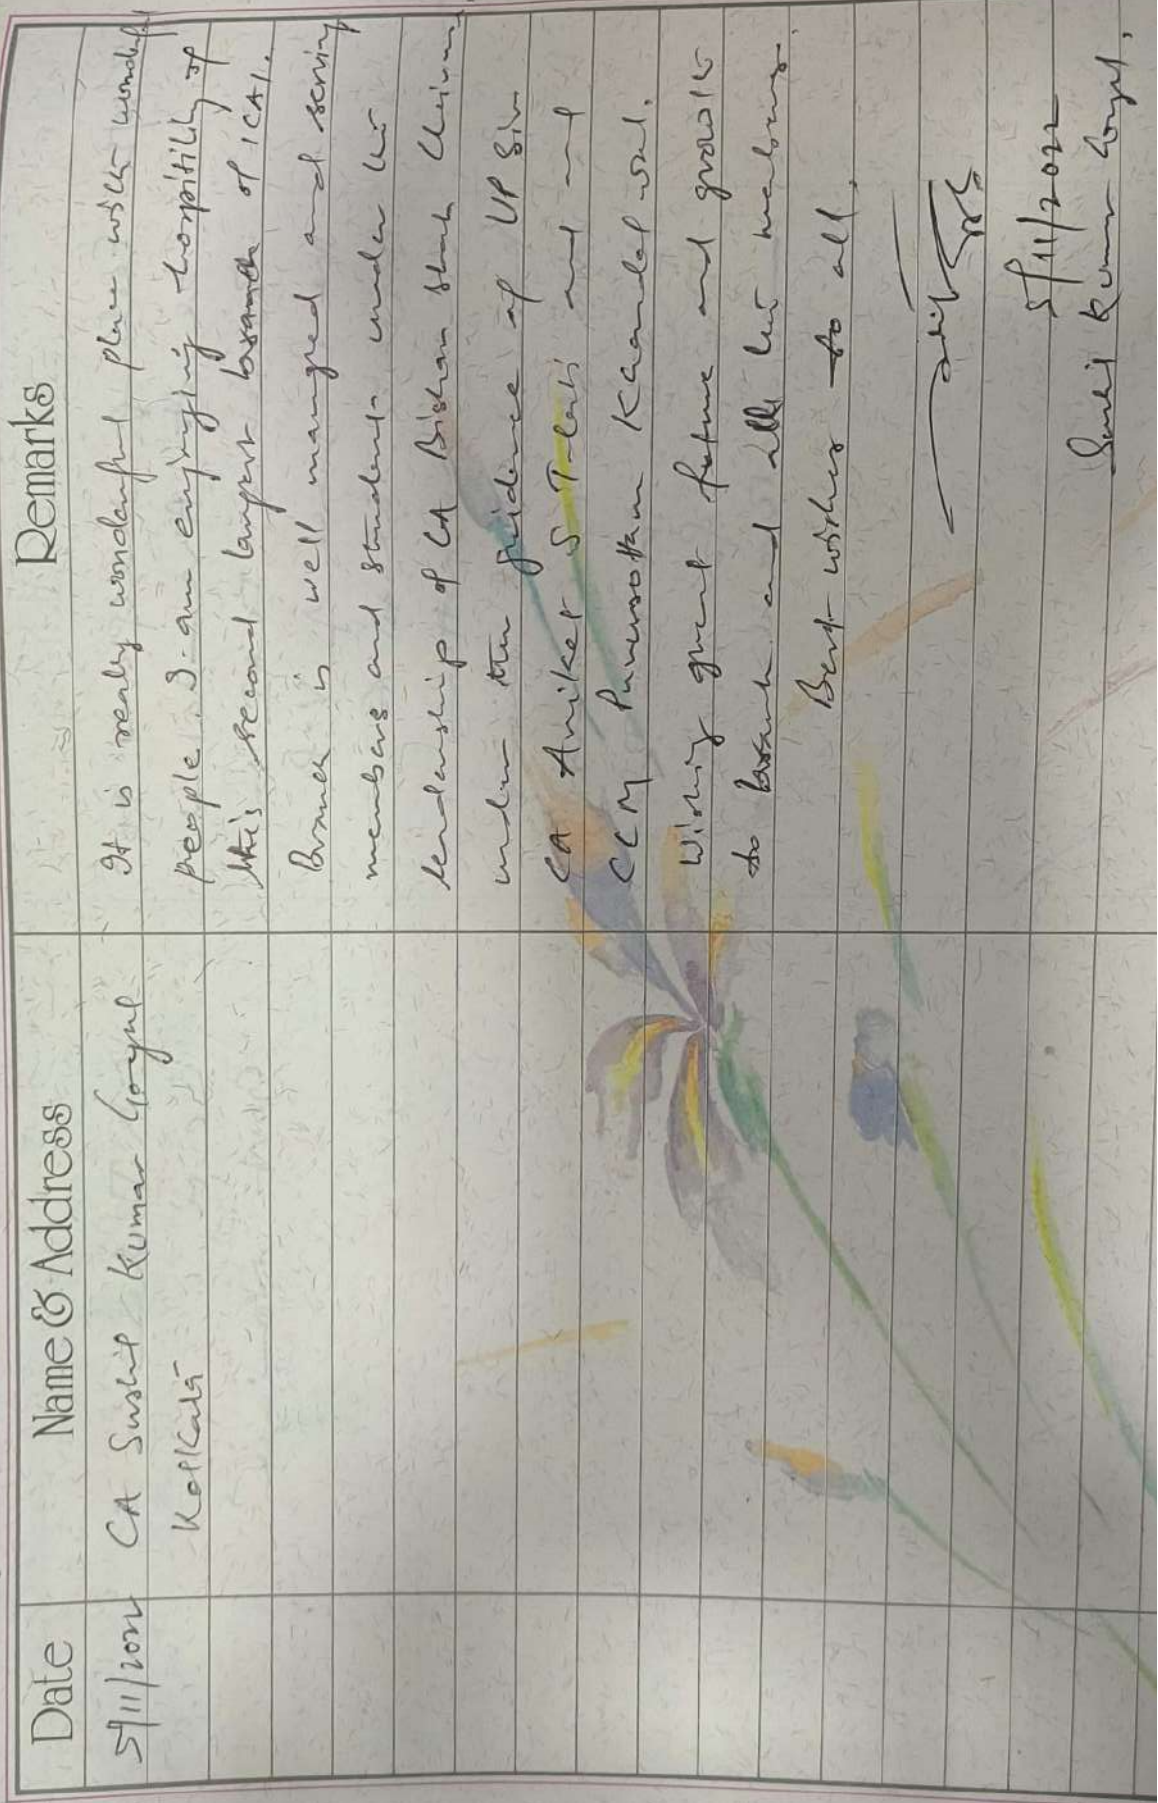 Date Name & Address Remarks
5/11/2022 CA Sushil Kumar Goyal
Kolkata
It is really wonderful place with wonderful
people. I am enjoying hospitility of
this second largest branch of ICAI.
Branch is well managed and serving
members and students under the
leadership of CA Bishan Shah Chairman
under the guidence of VP Sir
CA Aniket S Talati and and
CCM Purusottam Khandelwal.
Wishing great future and growth
to branch and all the members.
Best wishes to all.
5/11/2022
Sushil Kumar Goyal,